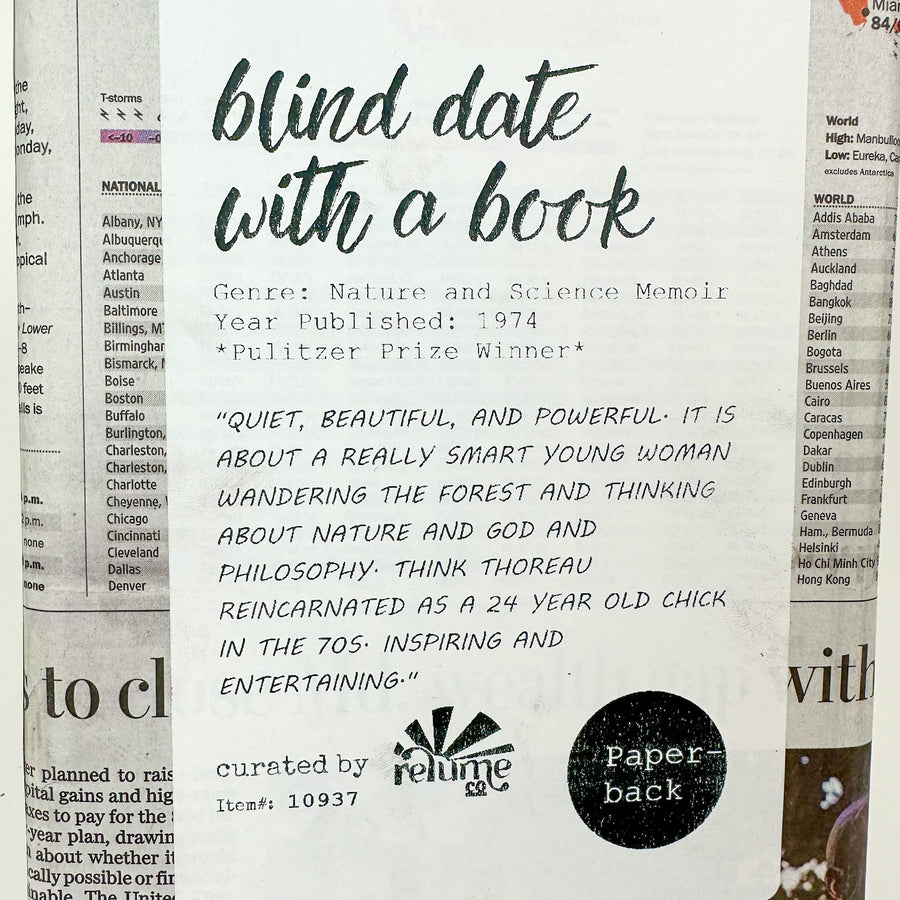 blind date
with a book
Genre: Nature and Science Memoir
Year Published: 1974
*Pulitzer Prize Winner*
"QUIET, BEAUTIFUL, AND POWERFUL. IT IS
ABOUT A REALLY SMART YOUNG WOMAN
WANDERING THE FOREST AND THINKING
ABOUT NATURE AND GOD AND
PHILOSOPHY. THINK THOREAU
REINCARNATED AS A 24 YEAR OLD CHICK
IN THE 70S. INSPIRING AND
ENTERTAINING."
curated by
relume
co
Item#: 10937
Paper-
back
T-storms
NATIONAL
Albany, NY
Albuquerqu
Anchorage
Atlanta
Austin
Baltimore
Billings, MT
Birmingham
Bismarck, N
Boise
Boston
Buffalo
Burlington,
Charleston,
Charleston,
Charlotte
Cheyenne, W
Chicago
Cincinnati
Cleveland
Dallas
Denver
Lower
p.m.
p.m.
none
p.m.
none
s to cl
er planned to rais
pital gains and hig
xes to pay for the
-year plan, drawin
about whether it
cally possible or fir
nable. The United
84/
World
High: Manbulloo
Low: Eureka, Ca
excludes Antarctica
WORLD
Addis Ababa
Amsterdam
Athens
Auckland
Baghdad
Bangkok
Beijing
Berlin
Bogota
Brussels
Buenos Aires
Cairo
Caracas
Copenhagen
Dakar
Dublin
Edinburgh
Frankfurt
Geneva
Ham., Bermuda
Helsinki
Ho Chi Minh City
Hong Kong
with